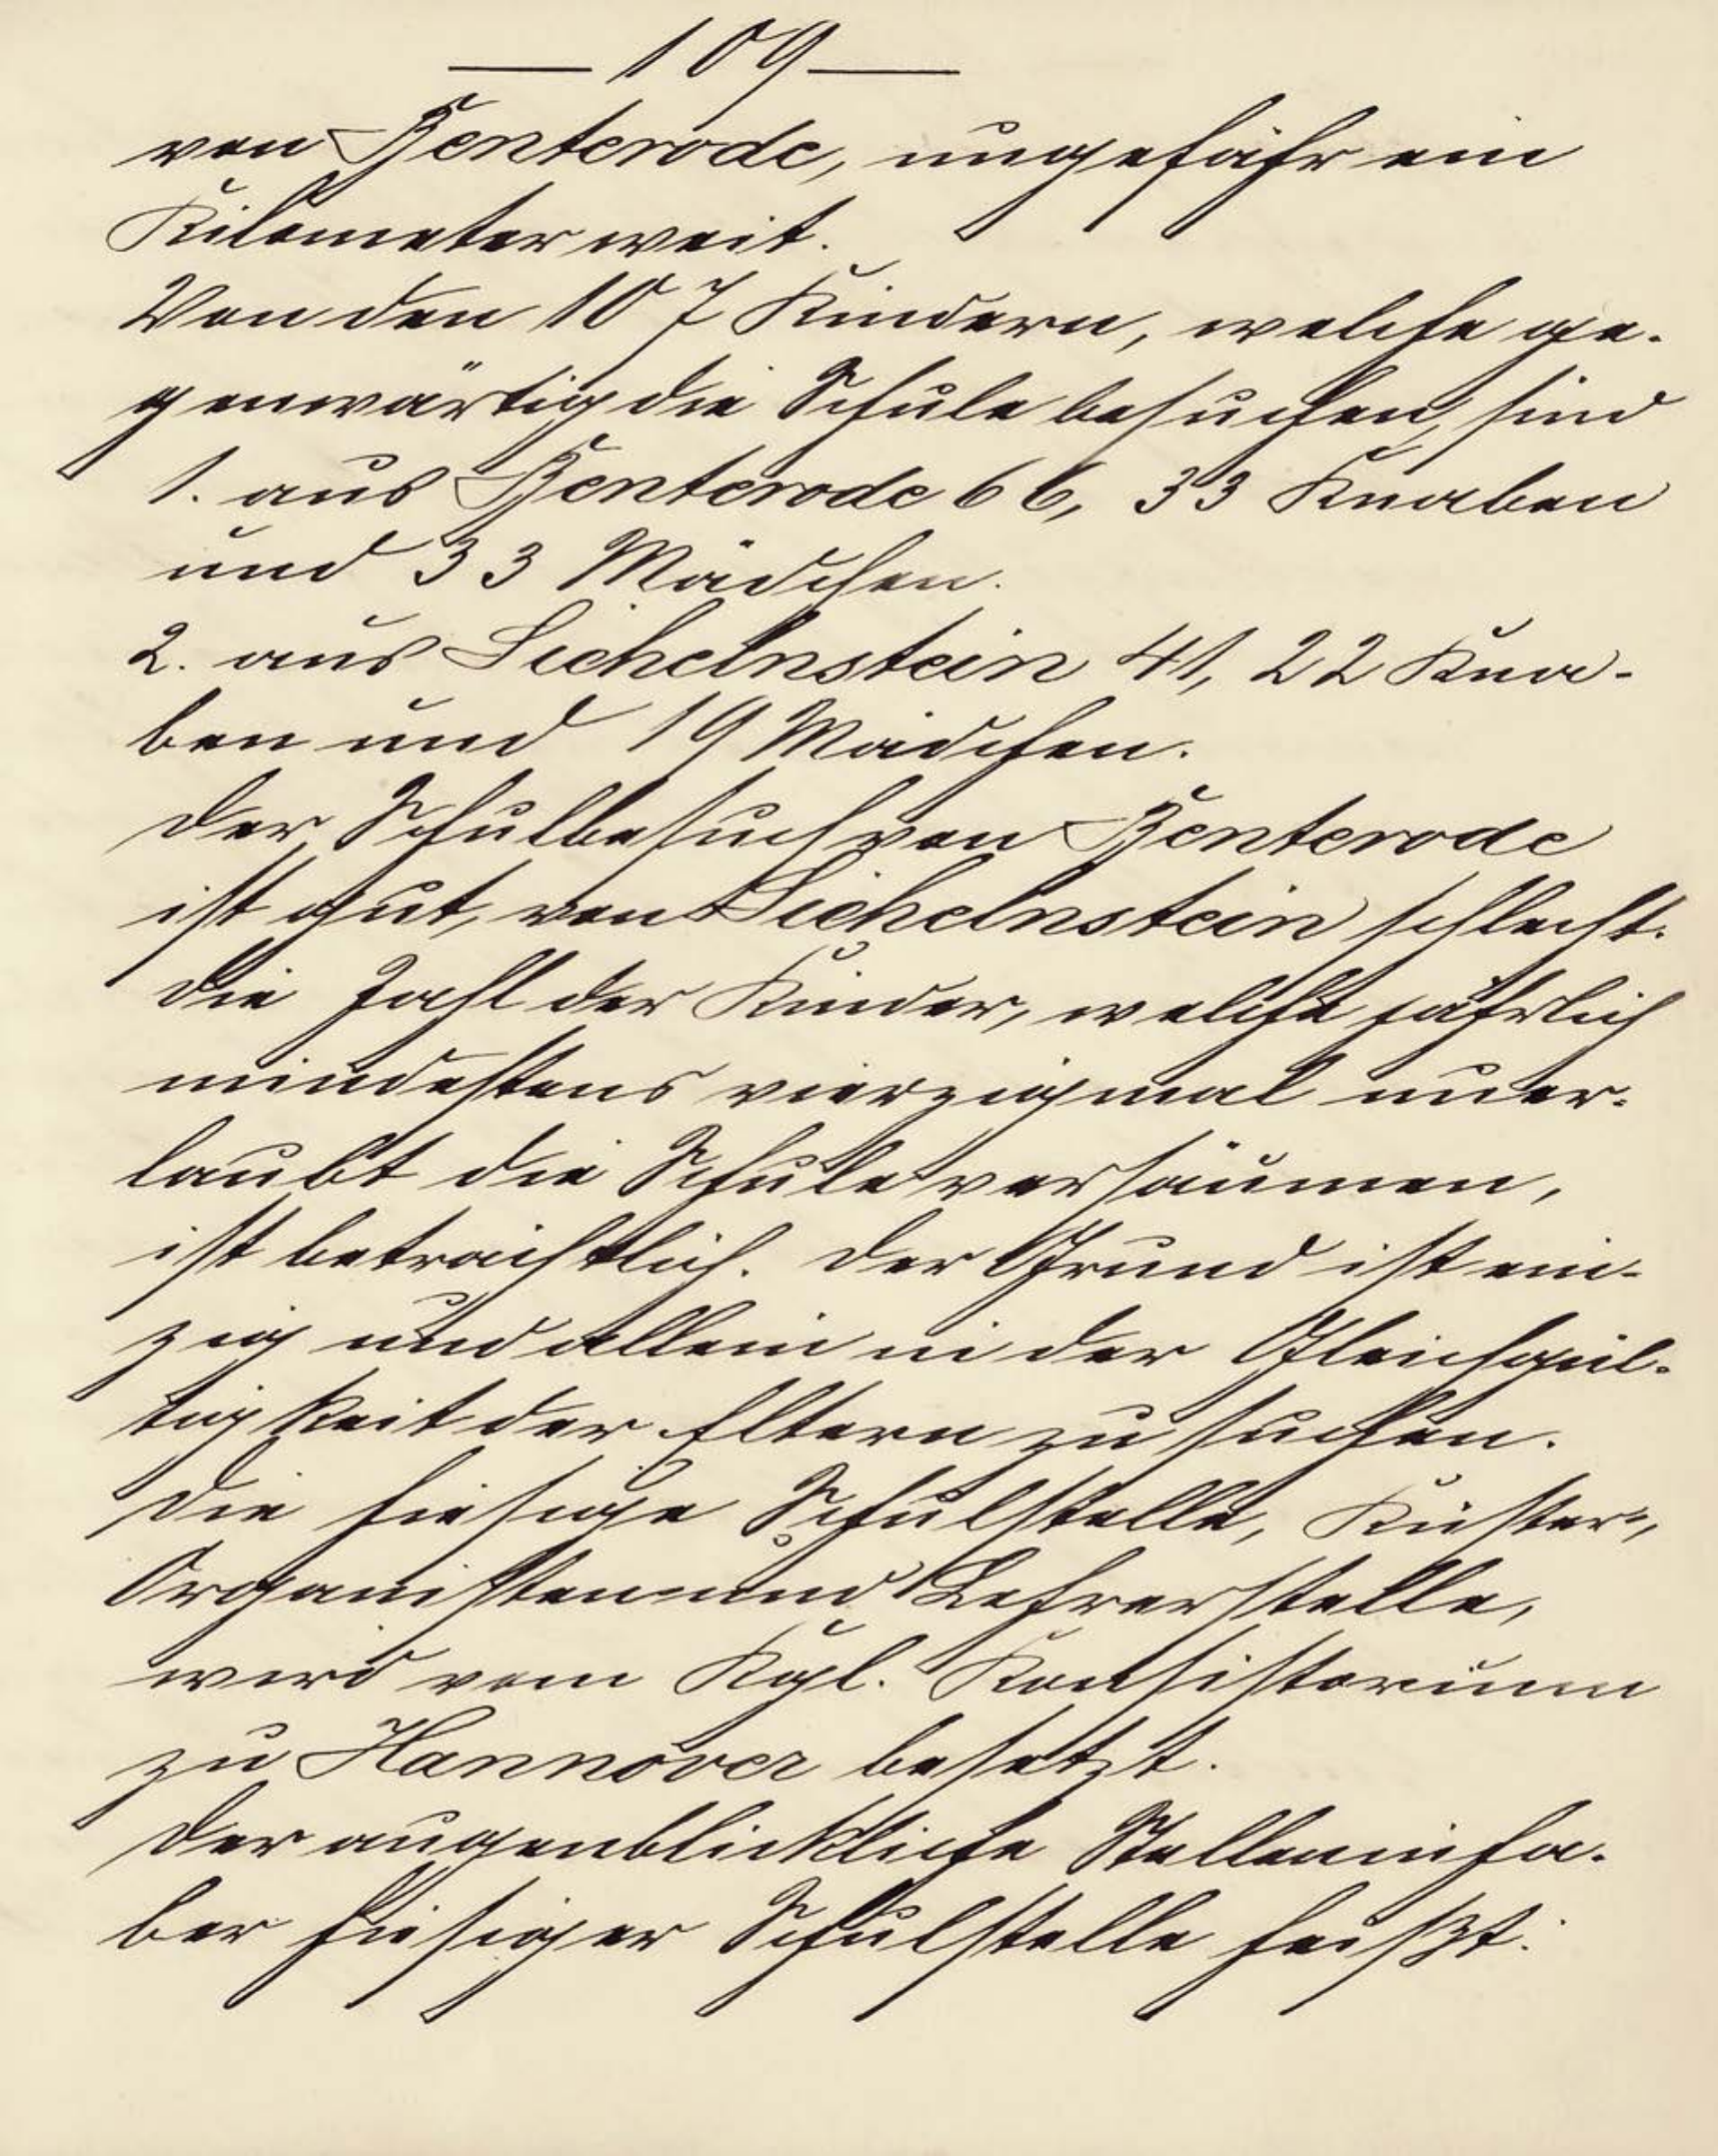 — 109 —
von Benterode, ungefähr ein
Kilometer weit.
Von den 107 Kindern, welche ge-
genwärtig die Schule besuchen, sind
1. aus Benterode 66, 33 Knaben
und 33 Mädchen.
2. aus Sichelnstein 41, 22 Kna-
ben und 19 Mädchen.
Der Schulbesuch von Benterode
ist gut, von Sichelnstein schlecht.
Die Zahl der Kinder, welche jährlich
mindestens vierzigmal uner-
laubt die Schule versäumen,
ist beträchtlich. Der Grund ist ein-
zig und allein in der Gleichgül-
tigkeit der Eltern zu suchen.
Die hiesige Schulstelle, Küster-,
Organisten- und Lehrerstelle,
wird vom Kgl. Konsistorium
zu Hannover besetzt.
Der augenblickliche Stelleninha-
ber hiesiger Schulstelle heißt: